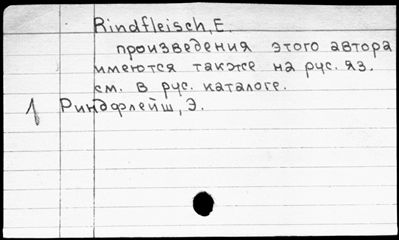 Rindfleisch, E.
произведения этого автора
имеются также на рус. яз.
см. в рус. каталоге.
Риндфлейш, Э.